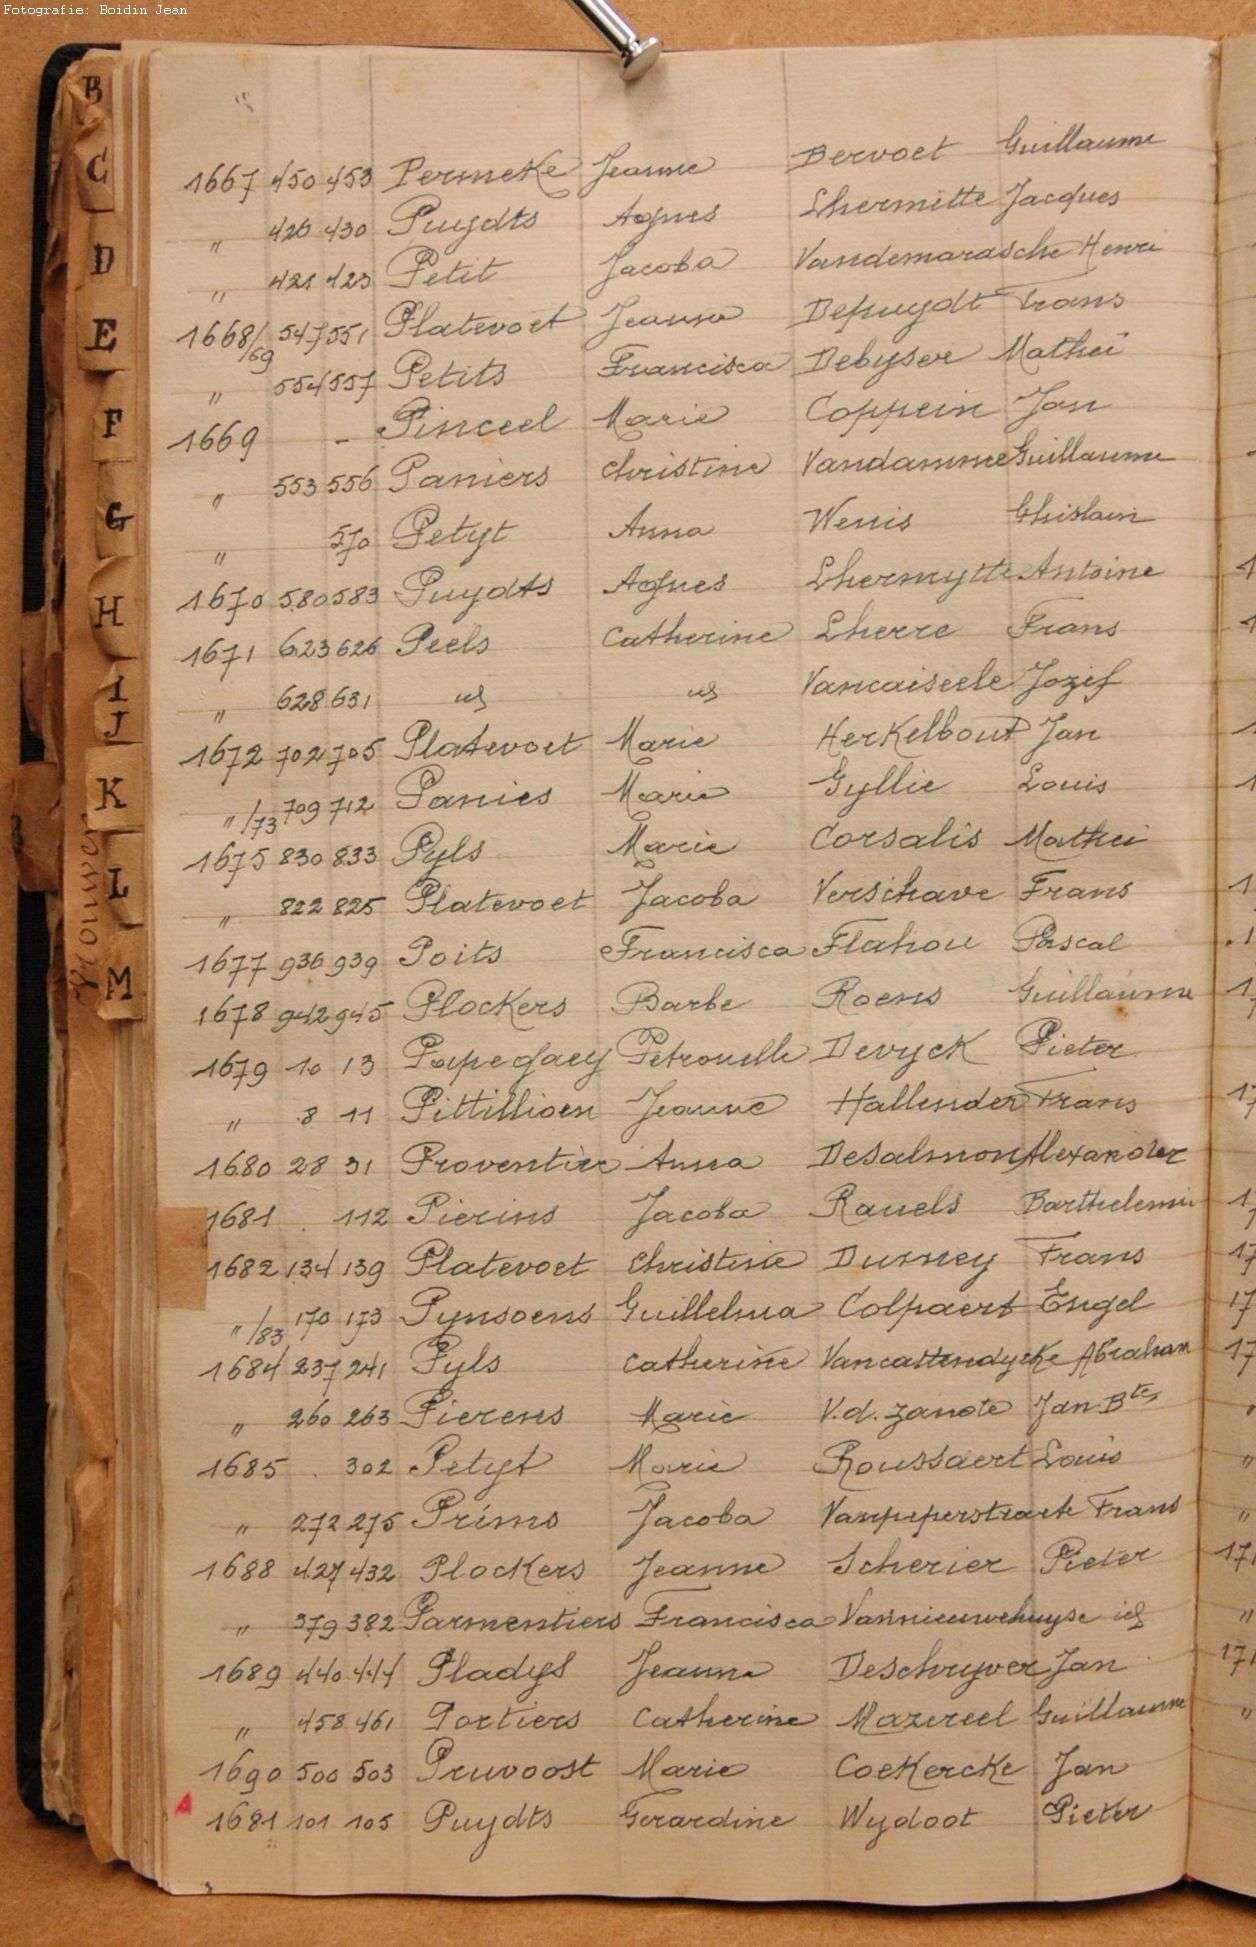 Fotografie: Boidin Jean
B
C
D
E
F
G
H
I
J
K
L
M
Vrouwen
1667 450 453 Permeke Jeanne Bervoet Guillaume
" 426 430 Puydts Agnes Lhermitte Jacques
" 421 423 Petit Jacoba Vandemarasche Henri
1668/69 547 551 Platevoet Jeanne Depuydt Frans
" 554 557 Petits Francisca Debyser Mathei
1669 - Pinceel Marie Coppein Jan
" 553 556 Paniers Christine Vandamme Guillaume
" 570 Petyt Anna Wenis Ghislain
1670 580 583 Puydts Agnes Lhermytte Antoine
1671 623 626 Peels Catherine Lherre Frans
" 628 631 id id Vancaiseele Jozef
1672 702 705 Platevoet Marie Herkelbout Jan
"/73 709 712 Panies Marie Gyllie Louis
1675 830 833 Pyls Marie Corsalis Mathei
" 822 825 Platevoet Jacoba Verschave Frans
1677 936 939 Poits Francisca Flahou Pascal
1678 942 945 Plockers Barbe Roens Guillaume
1679 10 13 Papegaey Petronelle Devyck Pieter
" 8 11 Pittillioen Jeanne Hallender Frans
1680 28 31 Proventier Anna Desalmon Alexander
1681 . 112 Pierins Jacoba Rauels Barthelemi
1682 134 139 Platevoet Christine Durney Frans
"/83 170 173 Pynsoens Guillelma Colpaert Engel
1684 237 241 Pyls Catherine Vancattendycke Abraham
" 260 263 Pierens Marie V.d. zande Jan Bte
1685 . 302 Petyt Marie Roussaert Louis
" 272 275 Prims Jacoba Vanpeperstraete Frans
1688 427 432 Plockers Jeanne Scherier Pieter
" 379 382 Parmentiers Francisca Vannieuwehuyse id
1689 440 444 Pladys Jeanne Deschryver Jan
" 458 461 Portiers Catherine Mazereel Guillaume
1690 500 503 Pruvoost Marie Coekercke Jan
1681 101 105 Puydts Gerardine Wydoot Pieter